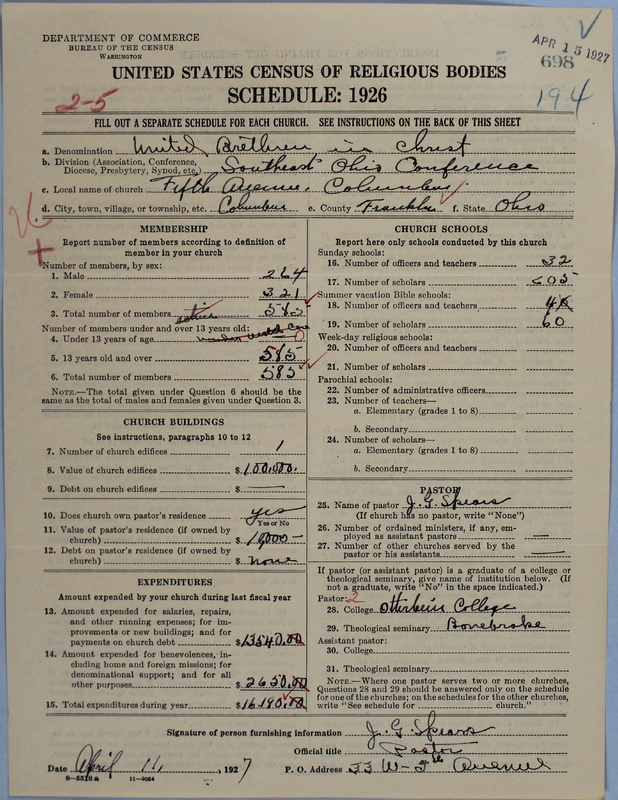 DEPARTMENT OF COMMERCE
BUREAU OF THE CENSUS
WASHINGTON
APR 15 1927
698
UNITED STATES CENSUS OF RELIGIOUS BODIES
SCHEDULE: 1926
2-5
194
FILL OUT A SEPARATE SCHEDULE FOR EACH CHURCH. SEE INSTRUCTIONS ON THE BACK OF THIS SHEET
a. Denomination United Brethren in Christ
b. Division (Association, Conference, Diocese, Presbytery, Synod, etc.) Southeast Ohio Conference
c. Local name of church Fifth Avenue, Columbus
d. City, town, village, or township, etc. Columbus e. County Franklin f. State Ohio
MEMBERSHIP
Report number of members according to definition of
member in your church
Number of members, by sex:
1. Male 264
2. Female 321
3. Total number of members active 585
Number of members under and over 13 years old:
4. Under 13 years of age 0
5. 13 years old and over 585
6. Total number of members 585
NOTE.—The total given under Question 6 should be
the same as the total of males and females given under Question 3.
CHURCH BUILDINGS
See instructions, paragraphs 10 to 12
7. Number of church edifices 1
8. Value of church edifices $100,000.
9. Debt on church edifices $ —
10. Does church own pastor's residence yes
Yes or No
11. Value of pastor's residence (if owned by
church) $10,000 —
12. Debt on pastor's residence (if owned by
church) $ none
EXPENDITURES
Amount expended by your church during last fiscal year
13. Amount expended for salaries, repairs,
and other running expenses; for im-
provements or new buildings; and for
payments on church debt $13540.00
14. Amount expended for benevolences, in-
cluding home and foreign missions; for
denominational support; and for all
other purposes $2650.00
15. Total expenditures during year $16190.00
CHURCH SCHOOLS
Report here only schools conducted by this church
Sunday schools:
16. Number of officers and teachers 32
17. Number of scholars 605
Summer vacation Bible schools:
18. Number of officers and teachers
19. Number of scholars 60
Week-day religious schools:
20. Number of officers and teachers
21. Number of scholars
Parochial schools:
22. Number of administrative officers
23. Number of teachers—
a. Elementary (grades 1 to 8)
b. Secondary
24. Number of scholars—
a. Elementary (grades 1 to 8)
b. Secondary
PASTOR
25. Name of pastor J. G. Spears
(If church has no pastor, write "None")
26. Number of ordained ministers, if any, em-
ployed as assistant pastors —
27. Number of other churches served by the
pastor or his assistants —
If pastor (or assistant pastor) is a graduate of a college or
theological seminary, give name of institution below. (If
not a graduate, write "No" in the space indicated.)
Pastor: 2
28. College Otterbein College
29. Theological seminary Bonebrake
Assistant pastor:
30. College
31. Theological seminary
NOTE.—Where one pastor serves two or more churches,
Questions 28 and 29 should be answered only on the schedule
for one of the churches; on the schedules for the other churches,
write "See schedule for church."
Signature of person furnishing information J. G. Spears
Official title Pastor
Date April 11, 1927 P. O. Address 33 W-5th Avenue
8-5518a 11-9054